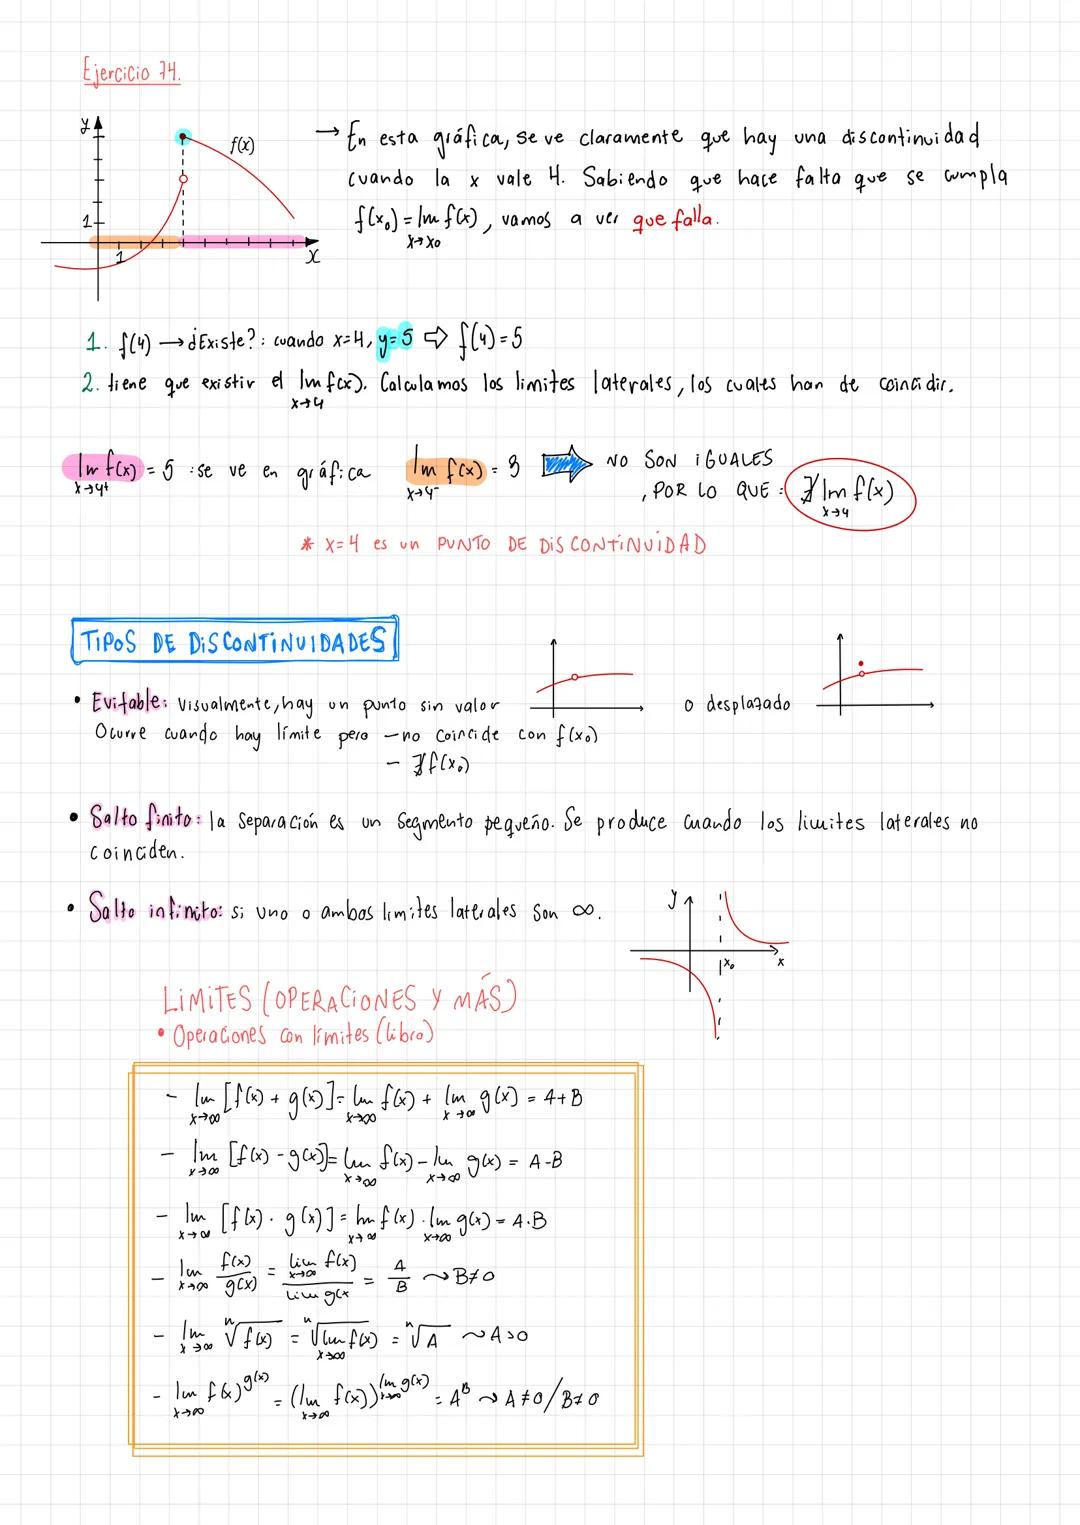 Ejercicio 74.
y
f(x)
1
1
x
→ En esta gráfica, se ve claramente que hay una discontinuidad
cuando la x vale 4. Sabiendo que hace falta que se cumpla
f(x₀) = lim f(x), vamos a ver que falla.
x→x₀
1. f(4) → ¿Existe?: cuando x=4, y=5 ⇨ f(4)=5
2. tiene que existir el lim f(x). Calculamos los limites laterales, los cuales han de coincidir.
x→4
lim f(x) = 5 : se ve en gráfica lim f(x) = 3 ⇨ NO SON IGUALES
x→4⁺ x→4⁻ , POR LO QUE : ∄ lim f(x)
x→4
* x=4 es un PUNTO DE DISCONTINUIDAD
TIPOS DE DISCONTINUIDADES
• Evitable: Visualmente, hay un punto sin valor o desplazado
Ocurre cuando hay límite pero – no coincide con f(x₀)
– ∄ f(x₀)
• Salto finito: la separación es un segmento pequeño. Se produce cuando los limites laterales no
coinciden.
• Salto infinito: si uno o ambos limites laterales son ∞.
y
x₀
x
LIMITES (OPERACIONES Y MÁS)
• Operaciones con límites (libro)
- lim [f(x) + g(x)] = lim f(x) + lim g(x) = A+B
x→∞ x→∞ x→∞
- lim [f(x) - g(x)] = lim f(x) - lim g(x) = A-B
x→∞ x→∞ x→∞
- lim [f(x) · g(x)] = lim f(x) · lim g(x) = A·B
x→∞ x→∞ x→∞
- lim f(x)/g(x) = lim f(x)/lim g(x = A/B ~ B≠0
x→∞ x→∞
- lim ⁿ√f(x) = ⁿ√lim f(x) = ⁿ√A ~ A>0
x→∞ x→∞
- lim f(x)^g(x) = (lim f(x))^lim g(x) = A^B ~ A≠0/B≠0
x→∞ x→∞ x→∞